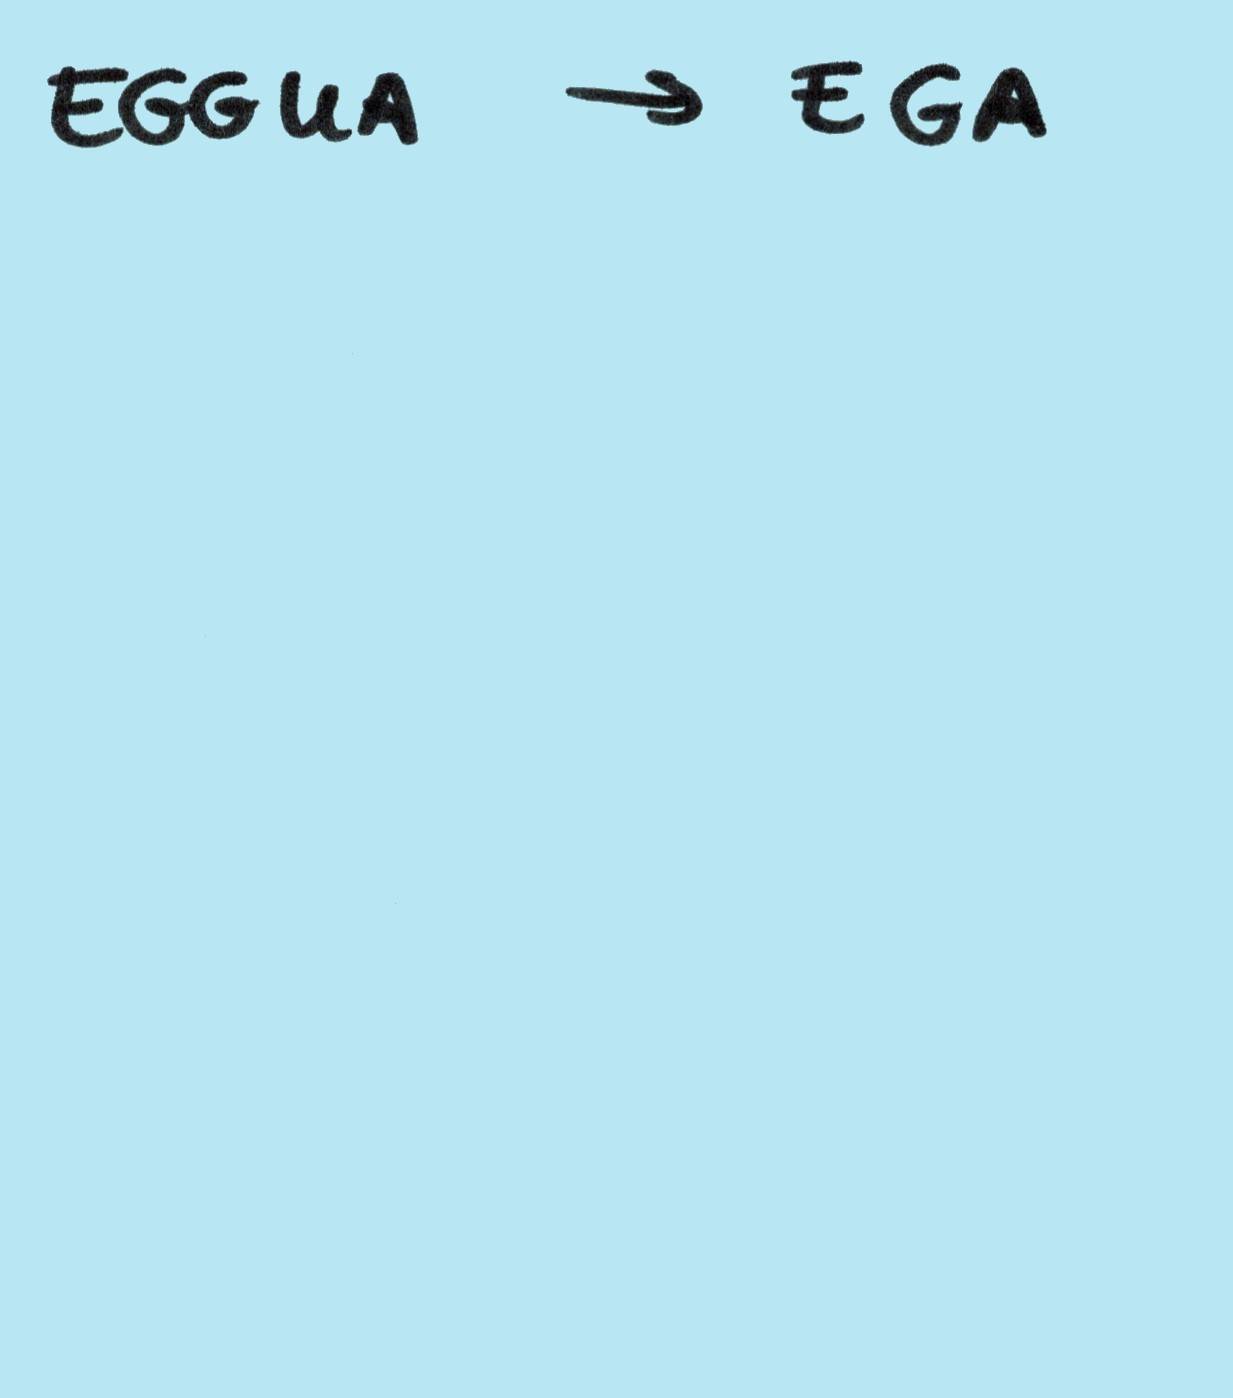 EGGUA → EGA